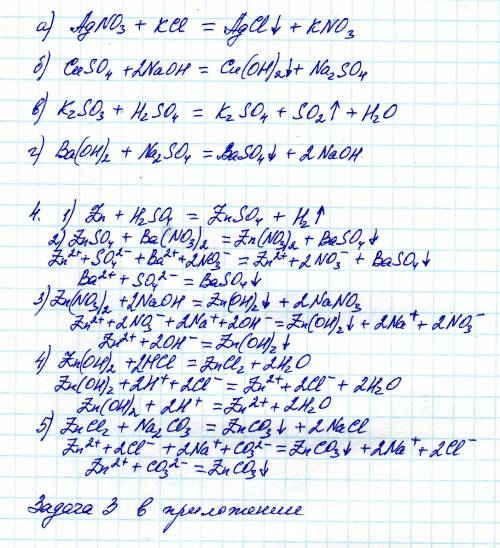 а) AgNO₃ + KCl = AgCl↓ + KNO₃
б) CuSO₄ + 2NaOH = Cu(OH)₂↓ + Na₂SO₄
в) K₂SO₃ + H₂SO₄ = K₂SO₄ + SO₂↑ + H₂O
г) Ba(OH)₂ + Na₂SO₄ = BaSO₄↓ + 2NaOH
4. 1) Zn + H₂SO₄ = ZnSO₄ + H₂↑
2) ZnSO₄ + Ba(NO₃)₂ = Zn(NO₃)₂ + BaSO₄↓
Zn²⁺ + SO₄²⁻ + Ba²⁺ + 2NO₃⁻ = Zn²⁺ + 2NO₃⁻ + BaSO₄↓
Ba²⁺ + SO₄²⁻ = BaSO₄↓
3) Zn(NO₃)₂ + 2NaOH = Zn(OH)₂↓ + 2NaNO₃
Zn²⁺ + 2NO₃⁻ + 2Na⁺ + 2OH⁻ = Zn(OH)₂↓ + 2Na⁺ + 2NO₃⁻
Zn²⁺ + 2OH⁻ = Zn(OH)₂↓
4) Zn(OH)₂ + 2HCl = ZnCl₂ + 2H₂O
Zn(OH)₂ + 2H⁺ + 2Cl⁻ = Zn²⁺ + 2Cl⁻ + 2H₂O
Zn(OH)₂ + 2H⁺ = Zn²⁺ + 2H₂O
5) ZnCl₂ + Na₂CO₃ = ZnCO₃↓ + 2NaCl
Zn²⁺ + 2Cl⁻ + 2Na⁺ + CO₃²⁻ = ZnCO₃↓ + 2Na⁺ + 2Cl⁻
Zn²⁺ + CO₃²⁻ = ZnCO₃↓
Задача 3 в приложении